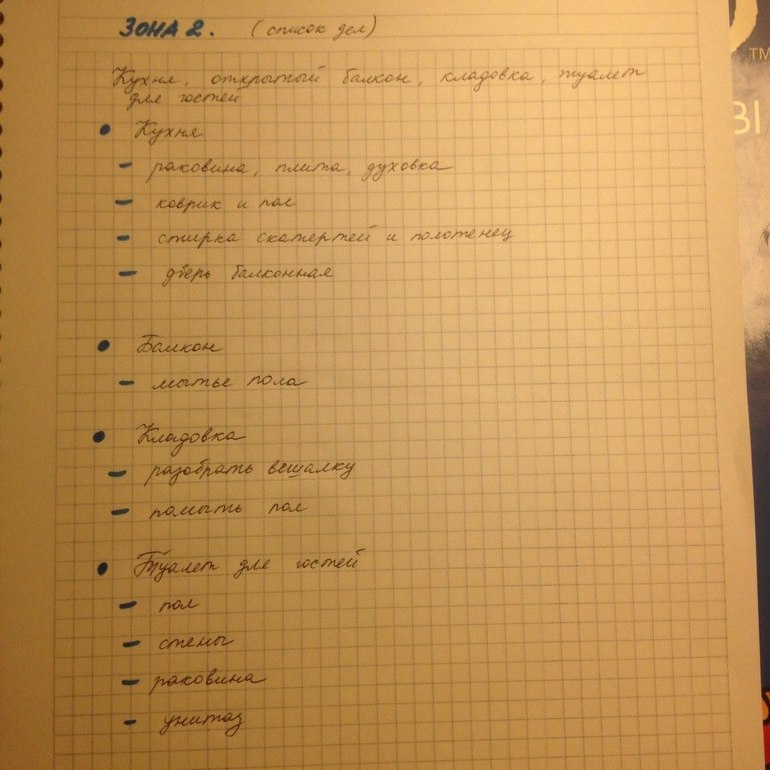 ЗОНА 2. (список дел)
Кухня, открытый балкон, кладовка, туалет
для гостей
• Кухня
- раковина, плита, духовка
- коврик и пол
- стирка скатертей и полотенец
- дверь балконная
• Балкон
- мытье пола
• Кладовка
- разобрать вешалку
- помыть пол
• Туалет для гостей
- пол
- стены
- раковина
- унитаз
TM
BI